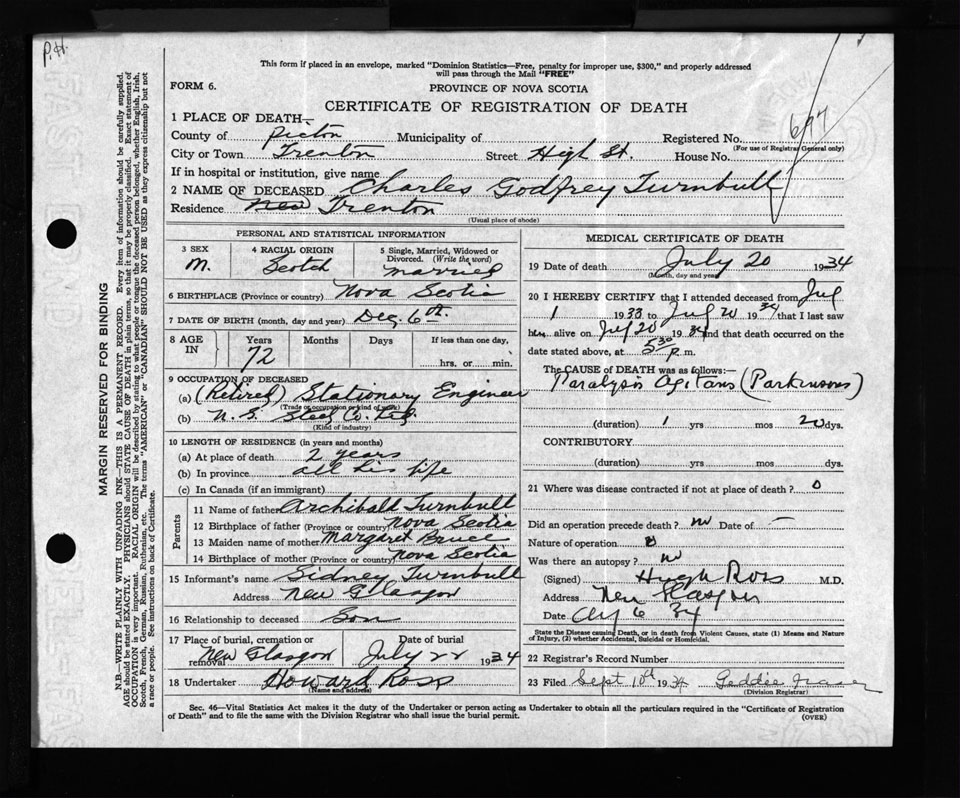 P.H.
This form if placed in an envelope, marked "Dominion Statistics—Free, penalty for improper use, $300," and properly addressed
will pass through the Mail "FREE"
FORM 6.
PROVINCE OF NOVA SCOTIA
CERTIFICATE OF REGISTRATION OF DEATH
697
1 PLACE OF DEATH—
County of Pictou Municipality of Registered No.
(For use of Registrar General only)
City or Town Trenton Street High St. House No.
If in hospital or institution, give name
2 NAME OF DECEASED Charles Godfrey Turnbull
Residence New Trenton
(Usual place of abode)
PERSONAL AND STATISTICAL INFORMATION
3 SEX 4 RACIAL ORIGIN 5 Single, Married, Widowed or
Divorced. (Write the word)
M. Scotch married
6 BIRTHPLACE (Province or country) Nova Scotia
7 DATE OF BIRTH (month, day and year) Dec. 6th.
8 AGE IN Years Months Days If less than one day,
72 hrs. or min.
9 OCCUPATION OF DECEASED
(a) (Retired) Stationary Engineer
(Trade or occupation or kind of work)
(b) N.S. Steel Co. Ltd.
(Kind of industry)
10 LENGTH OF RESIDENCE (in years and months)
(a) At place of death 2 years
(b) In province all his life
(c) In Canada (if an immigrant)
Parents
11 Name of father Archibald Turnbull
12 Birthplace of father (Province or country) Nova Scotia
13 Maiden name of mother Margaret Bruce
14 Birthplace of mother (Province or country) Nova Scotia
15 Informant's name Sidney Turnbull
Address New Glasgow
16 Relationship to deceased Son
17 Place of burial, cremation or Date of burial
removal New Glasgow July 22 1934
18 Undertaker Howard Ross
(Name and address)
MEDICAL CERTIFICATE OF DEATH
19 Date of death July 20 1934
(Month, day and year)
20 I HEREBY CERTIFY that I attended deceased from Jul
1 1933 to Jul 20 1934 that I last saw
him alive on Jul 20 1934 and that death occurred on the
date stated above, at 5 30 P. m.
The CAUSE OF DEATH was as follows:—
Paralysis Agitans (Parkinsons)
(duration) 1 yrs mos 20 dys.
CONTRIBUTORY
(duration) yrs mos dys.
21 Where was disease contracted if not at place of death? 0
Did an operation precede death? no Date of —
Nature of operation 0
Was there an autopsy? no
(Signed) Hugh Ross M.D.
Address New Glasgow
Date Aug 6 34
State the Disease causing Death, or in death from Violent Causes, state (1) Means and Nature
of Injury, (2) whether Accidental, Suicidal or Homicidal.
22 Registrar's Record Number
23 Filed Sept 10th 1934 Geddie Fraser
(Division Registrar)
Sec. 46—Vital Statistics Act makes it the duty of the Undertaker or person acting as Undertaker to obtain all the particulars required in the "Certificate of Registration
of Death" and to file the same with the Division Registrar who shall issue the burial permit.
(OVER)
MARGIN RESERVED FOR BINDING
N.B.—WRITE PLAINLY WITH UNFADING INK—THIS IS A PERMANENT RECORD. Every item of information should be carefully supplied.
AGE should be stated EXACTLY. PHYSICIANS should STATE CAUSE OF DEATH in plain terms, so that it may be properly classified. Exact statement of
OCCUPATION is very important. RACIAL ORIGIN will be described by stating to what people or tongue the deceased person belonged, whether English, Irish,
Scotch, French, German, Russian, Ruthenian, etc. The terms "AMERICAN" or "CANADIAN" SHOULD NOT BE USED as they express citizenship but not
a race or people. See instructions on back of Certificate.